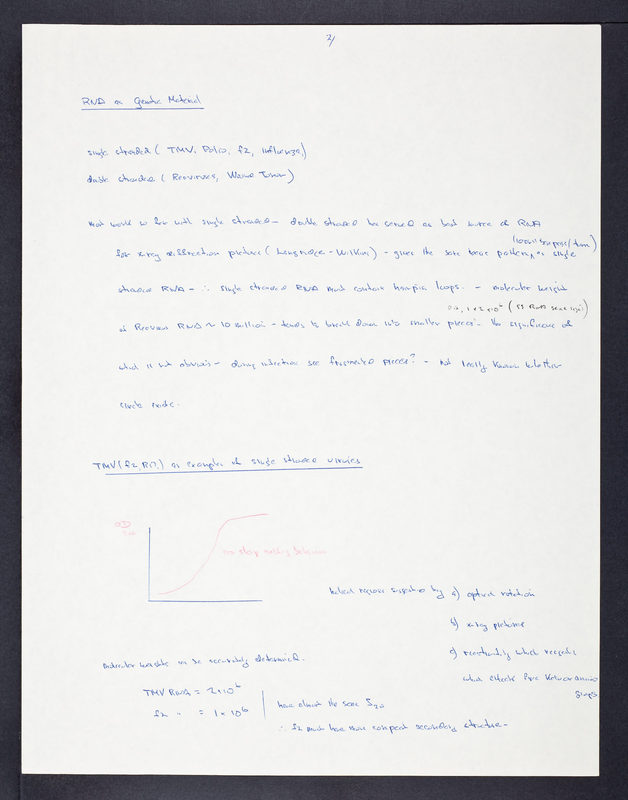 2/
RNA as Genetic Material
single stranded ( TMV, Polio, f2, Influenza)
double stranded ( Reoviruses, Wound Tumor)
most work so far with single stranded - double stranded has served as best source of RNA
for x-ray diffraction pictures ( Langridge - Wilkins) - gives the same basic pattern, as single
stranded RNA - ∴ single stranded RNA must contain hairpin loops. - molecular weight
of Reovirus RNA ~ 10 million - tends to break down into smaller pieces - the significance of
which is not obvious - during infection see fragmented pieces? - not really known whether
single
TMV (f2, R17) as examples of single stranded viruses
OD
no sharp melting behavior
helical regions suggested by a) optical rotation
b) x-ray pictures
c) reactivity with reagents
which effects free keto or amino
groups
molecular weights can be accurately determined.
TMV RNA = 2×10⁶
f2 " = 1×10⁶
have almost the same S₂₀
∴ f2 must have more compact secondary structure -